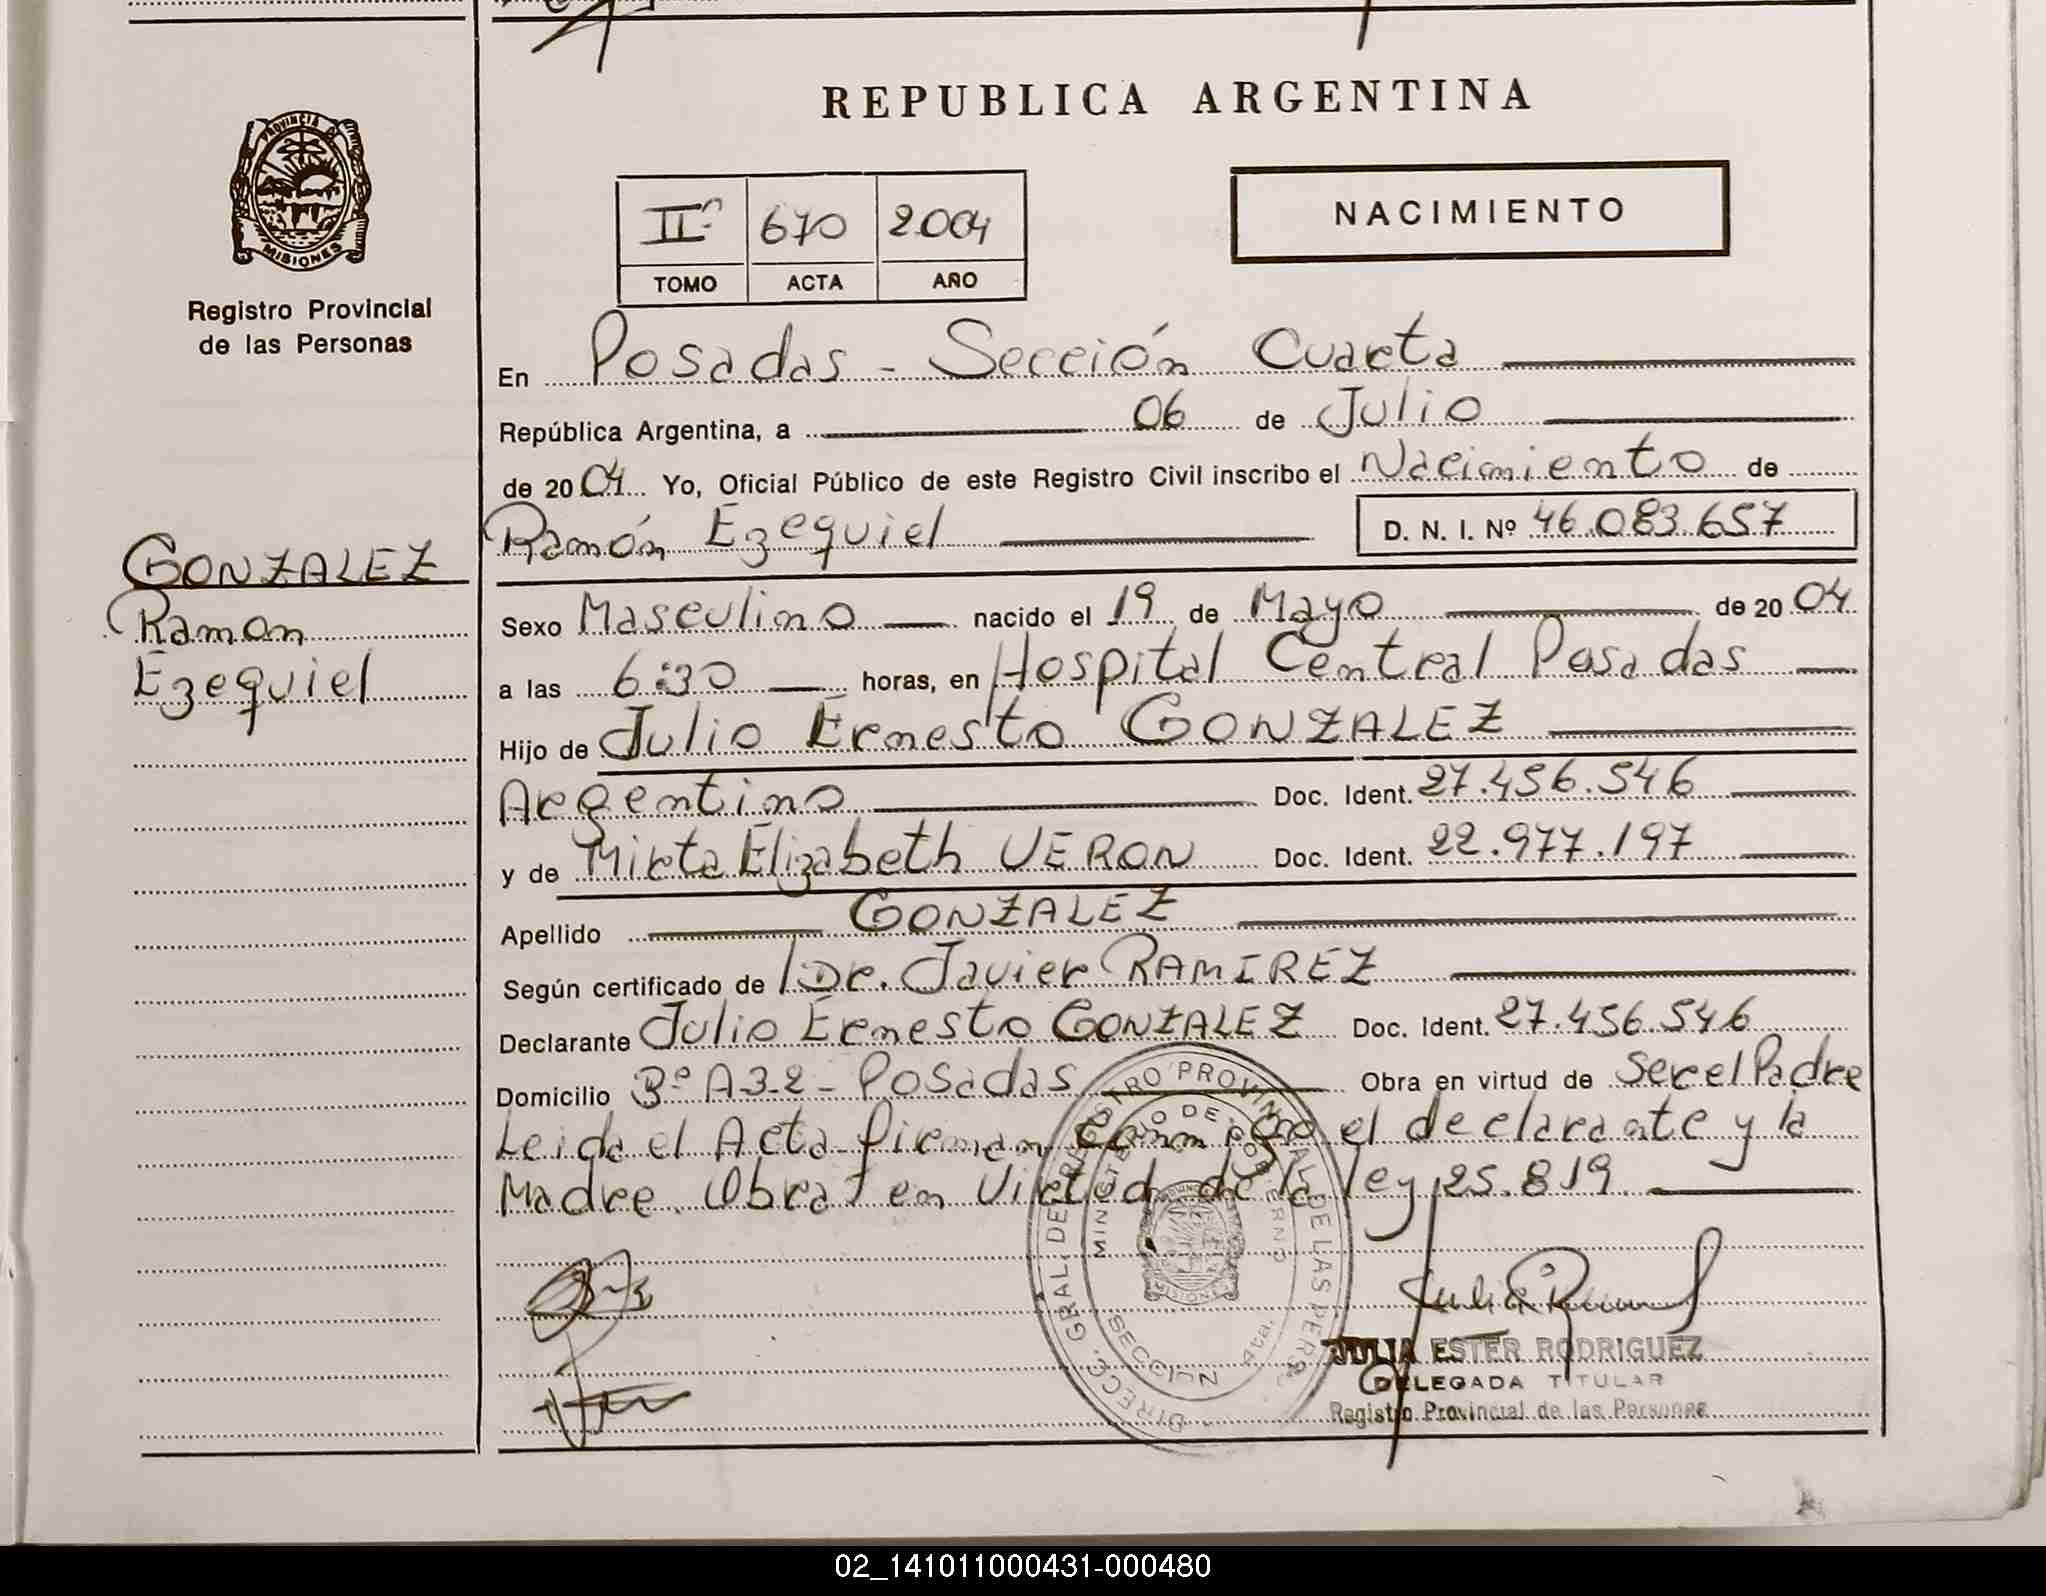 REPUBLICA ARGENTINA
PROVINCIA DE
MISIONES
Registro Provincial
de las Personas
IIº 670 2004
TOMO ACTA AÑO
NACIMIENTO
En Posadas - Sección Cuarta
República Argentina, a 06 de Julio
de 2004 Yo, Oficial Público de este Registro Civil inscribo el Nacimiento de
Ramón Ezequiel D. N. I. Nº 46.083.657
GONZALEZ
Ramon
Ezequiel
Sexo Masculino nacido el 19 de Mayo de 2004
a las 6:30 horas, en Hospital Central Posadas
Hijo de Julio Ernesto GONZALEZ
Argentino Doc. Ident. 27.456.546
y de Mirta Elizabeth VERON Doc. Ident. 22.977.197
Apellido GONZALEZ
Según certificado de Dr. Javier RAMIREZ
Declarante Julio Ernesto GONZALEZ Doc. Ident. 27.456.546
Domicilio Bº A3-2 - Posadas Obra en virtud de ser el Padre
Leida el Acta firman conmigo el declarante y la
Madre. Obrat en Virtud de la ley 25.819
DIRECC. GRAL. DE REGISTRO PROVINCIAL DE LAS PERS.
MINISTERIO DE GOBIERNO
MISIONES
SECCION 4ta.
JULIA ESTER RODRIGUEZ
DELEGADA TITULAR
Registro Provincial de las Personas
02_141011000431-000480